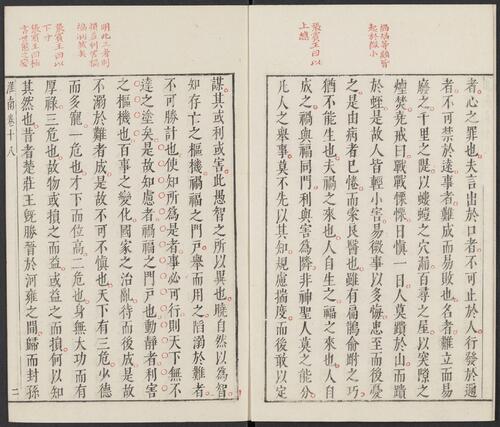 禍福等類皆
起於微小
張賓王曰以
上總
者心之罪也夫言出於口者不可止於人行發於邇
者不可禁於遠事者難成而易敗也名者難立而易
廢也千里之隄以螻螘之穴漏百尋之屋以突隙之
煙焚堯戒曰戰戰慄慄日慎一日人莫蹪於山而蹪
於蛭是故人皆輕小害易微事以多悔患至而後憂
之是由病者已惓而索良醫也雖有扁鵲俞跗之巧
猶不能生也夫禍之來也人自生之福之來也人自
成之禍與福同門利與害為隣非神聖人莫之能分
凡人之舉事莫不先以其知規慮揣度而後敢以定
明此三者則
張賓王曰以
下十
張賓王曰極
言世態之變
謀其或利或害此愚智之所以異也曉自然以為智
知存亡之樞機禍福之門戸舉而用之陷溺於難者
不可勝計也使知所為是者事必可行則天下無不
達之塗矣是故知慮者禍福之門戸也動靜者利害
之樞機也百事之變化國家之治亂待而後成是故
不溺於難者成是故不可不慎也天下有三危少德
而多寵一危也才下而位高二危也身無大功而有
厚祿三危也故物或損之而益或益之而損何以知
其然也昔者楚莊王既勝晉於河雍之間歸而封孫
淮南卷十八
二